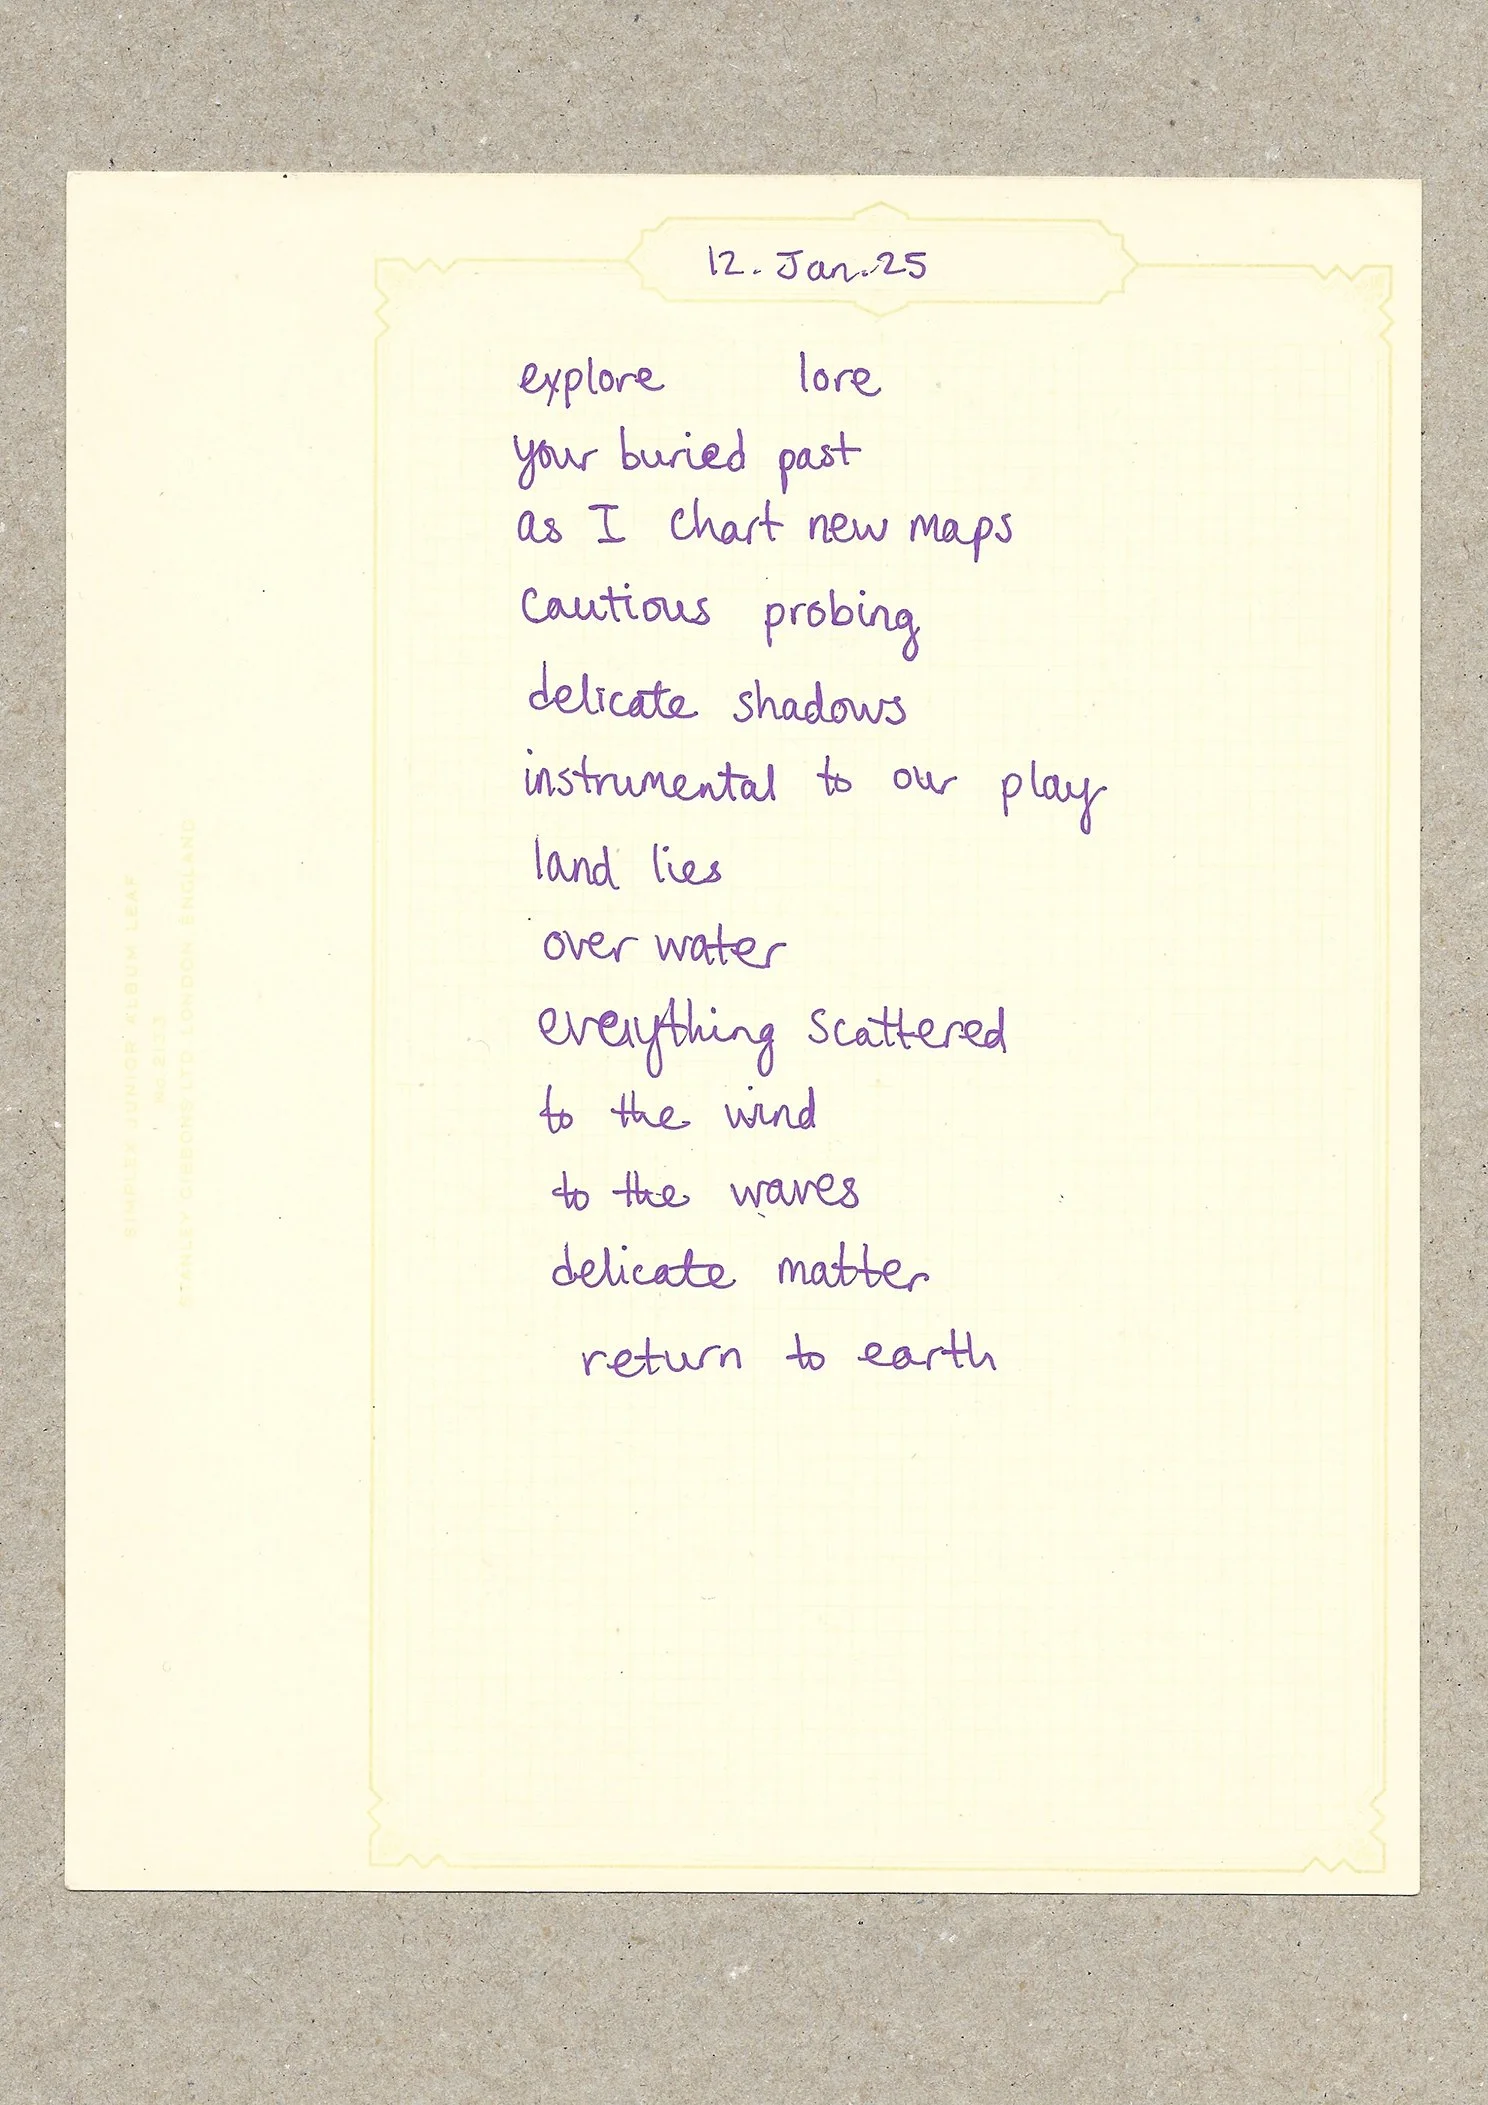 12. Jan. 25
explore lore
your buried past
as I chart new maps
cautious probing
delicate shadows
instrumental to our play
land lies
over water
everything scattered
to the wind
to the waves
delicate matter
return to earth
SIMPLEX JUNIOR ALBUM LEAF
STANLEY GIBBONS LTD LONDON, ENGLAND